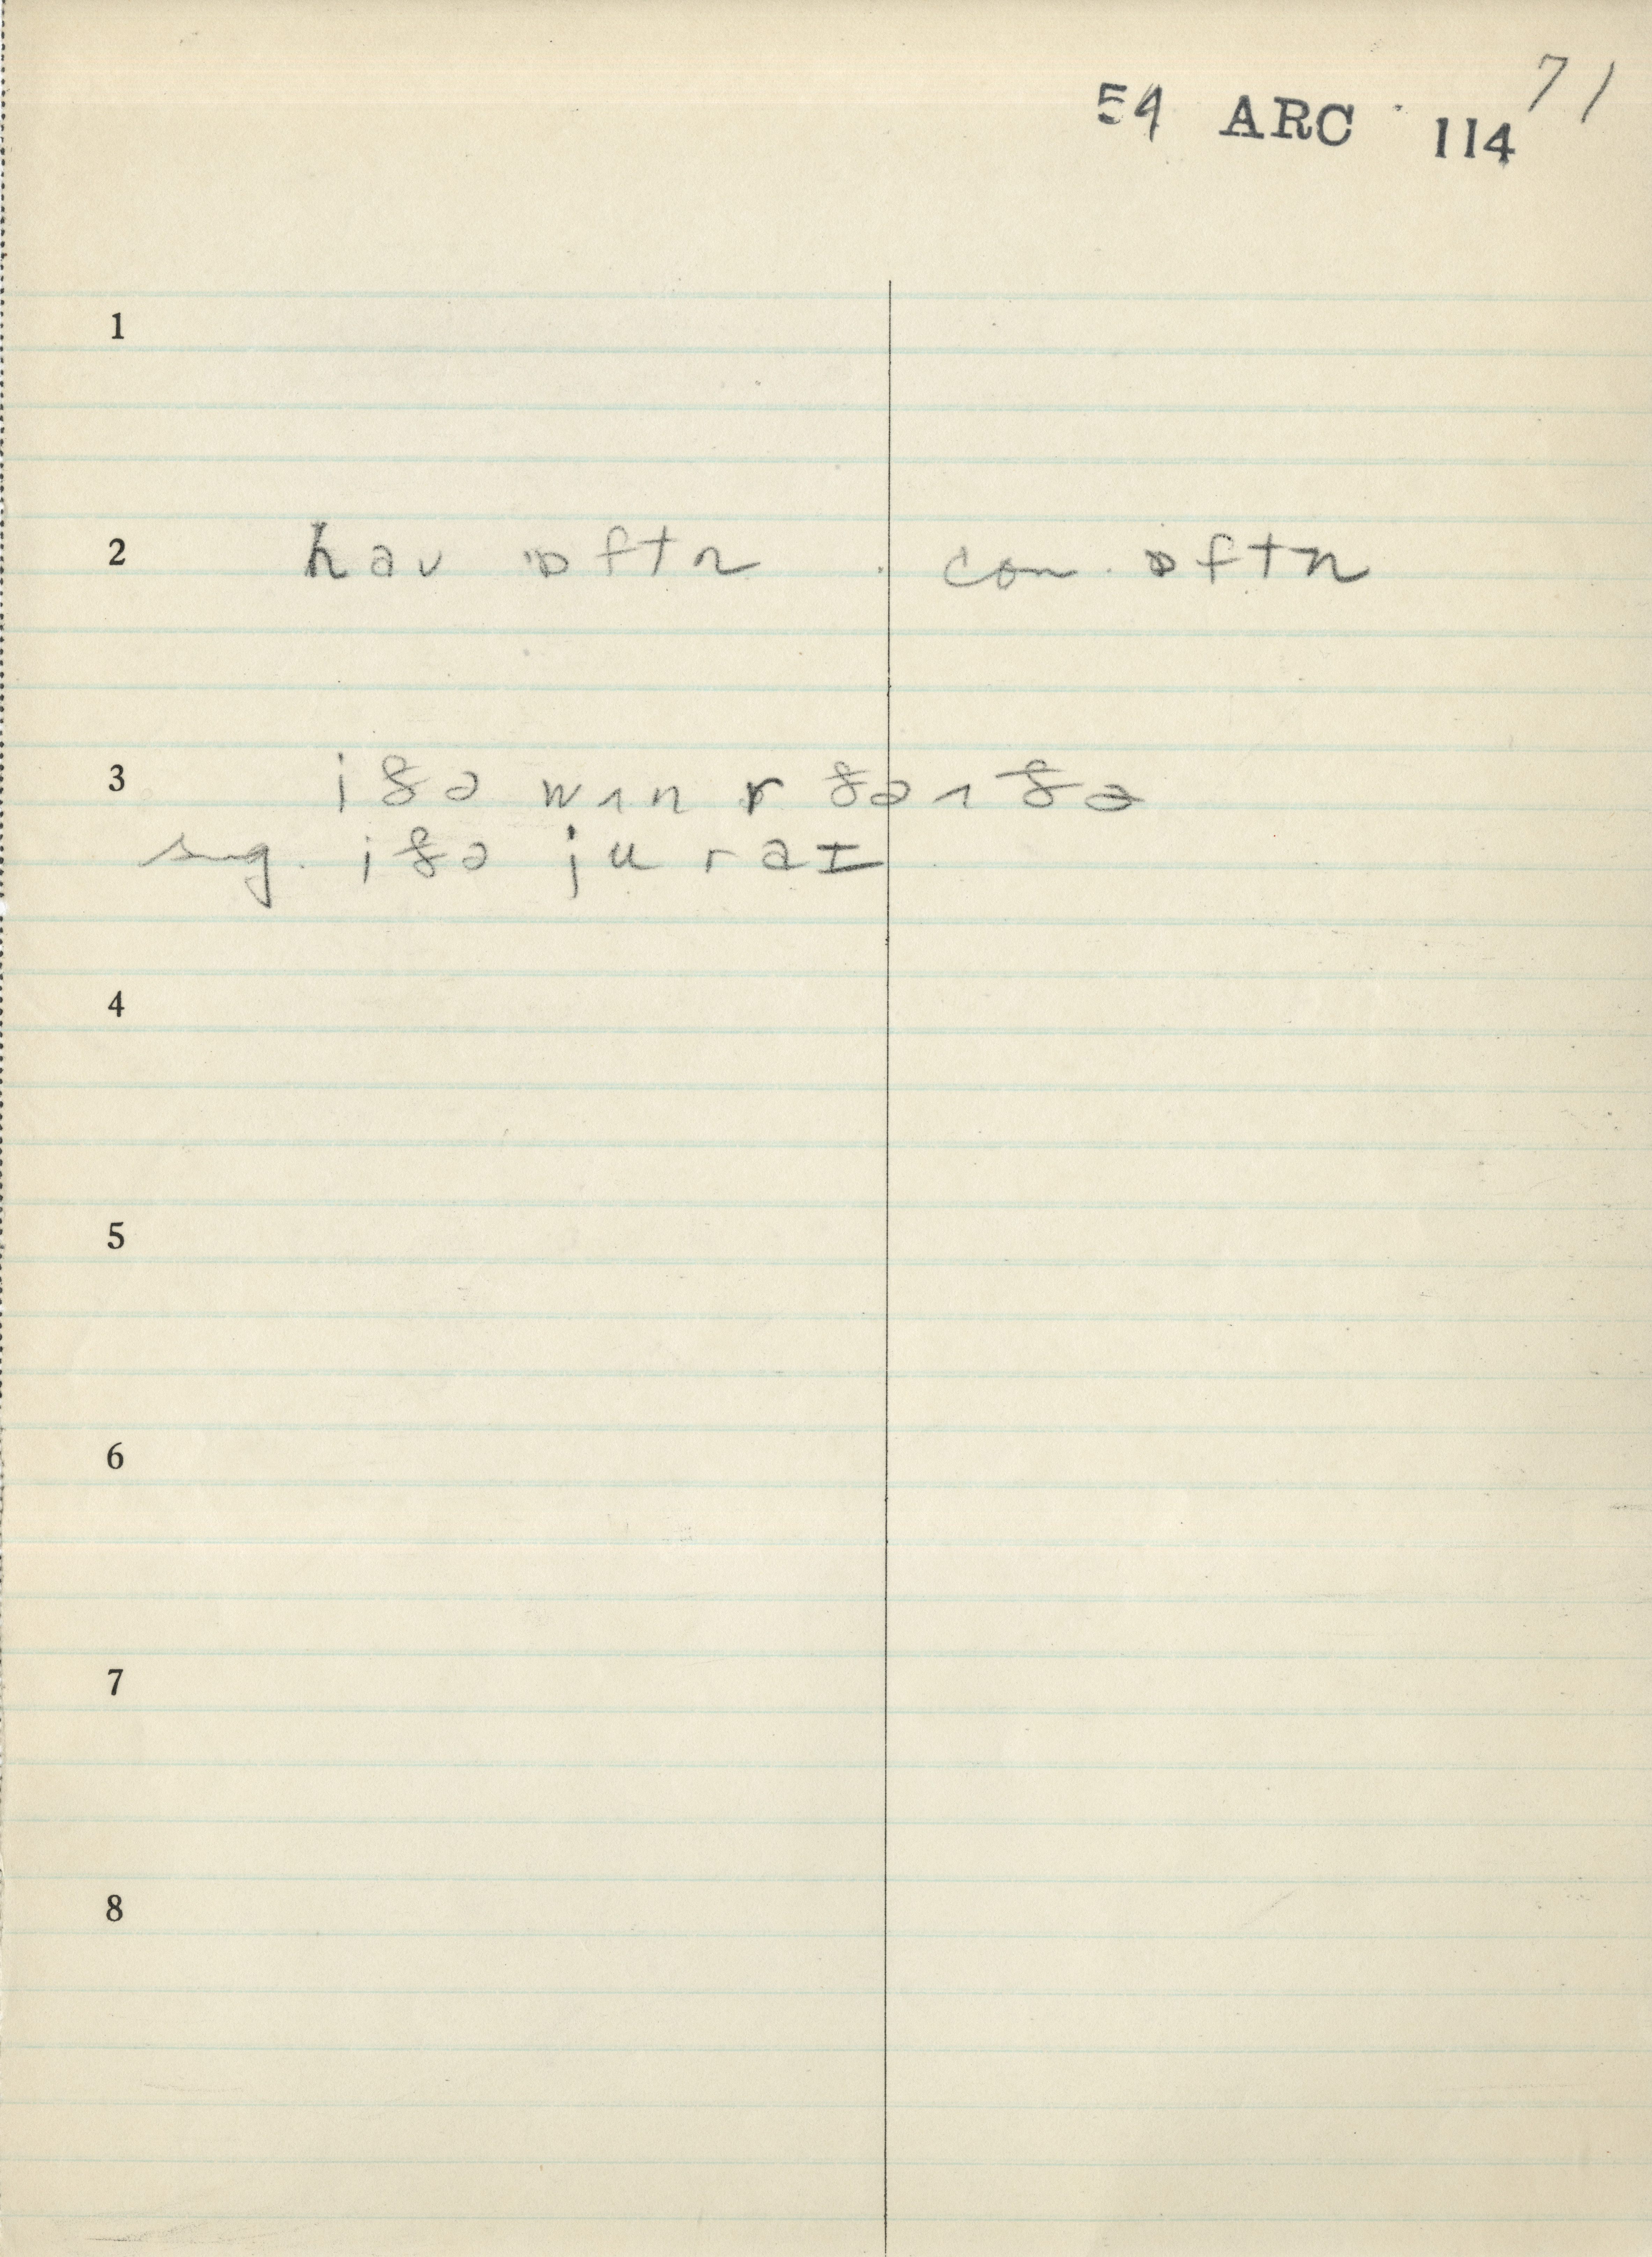 54 ARC 114 71
1
2 hav ɒftn con. ɒftn
3 iðə wʌn ɤ ðə ʌðə
sug. iðə ju r aɪ
4
5
6
7
8